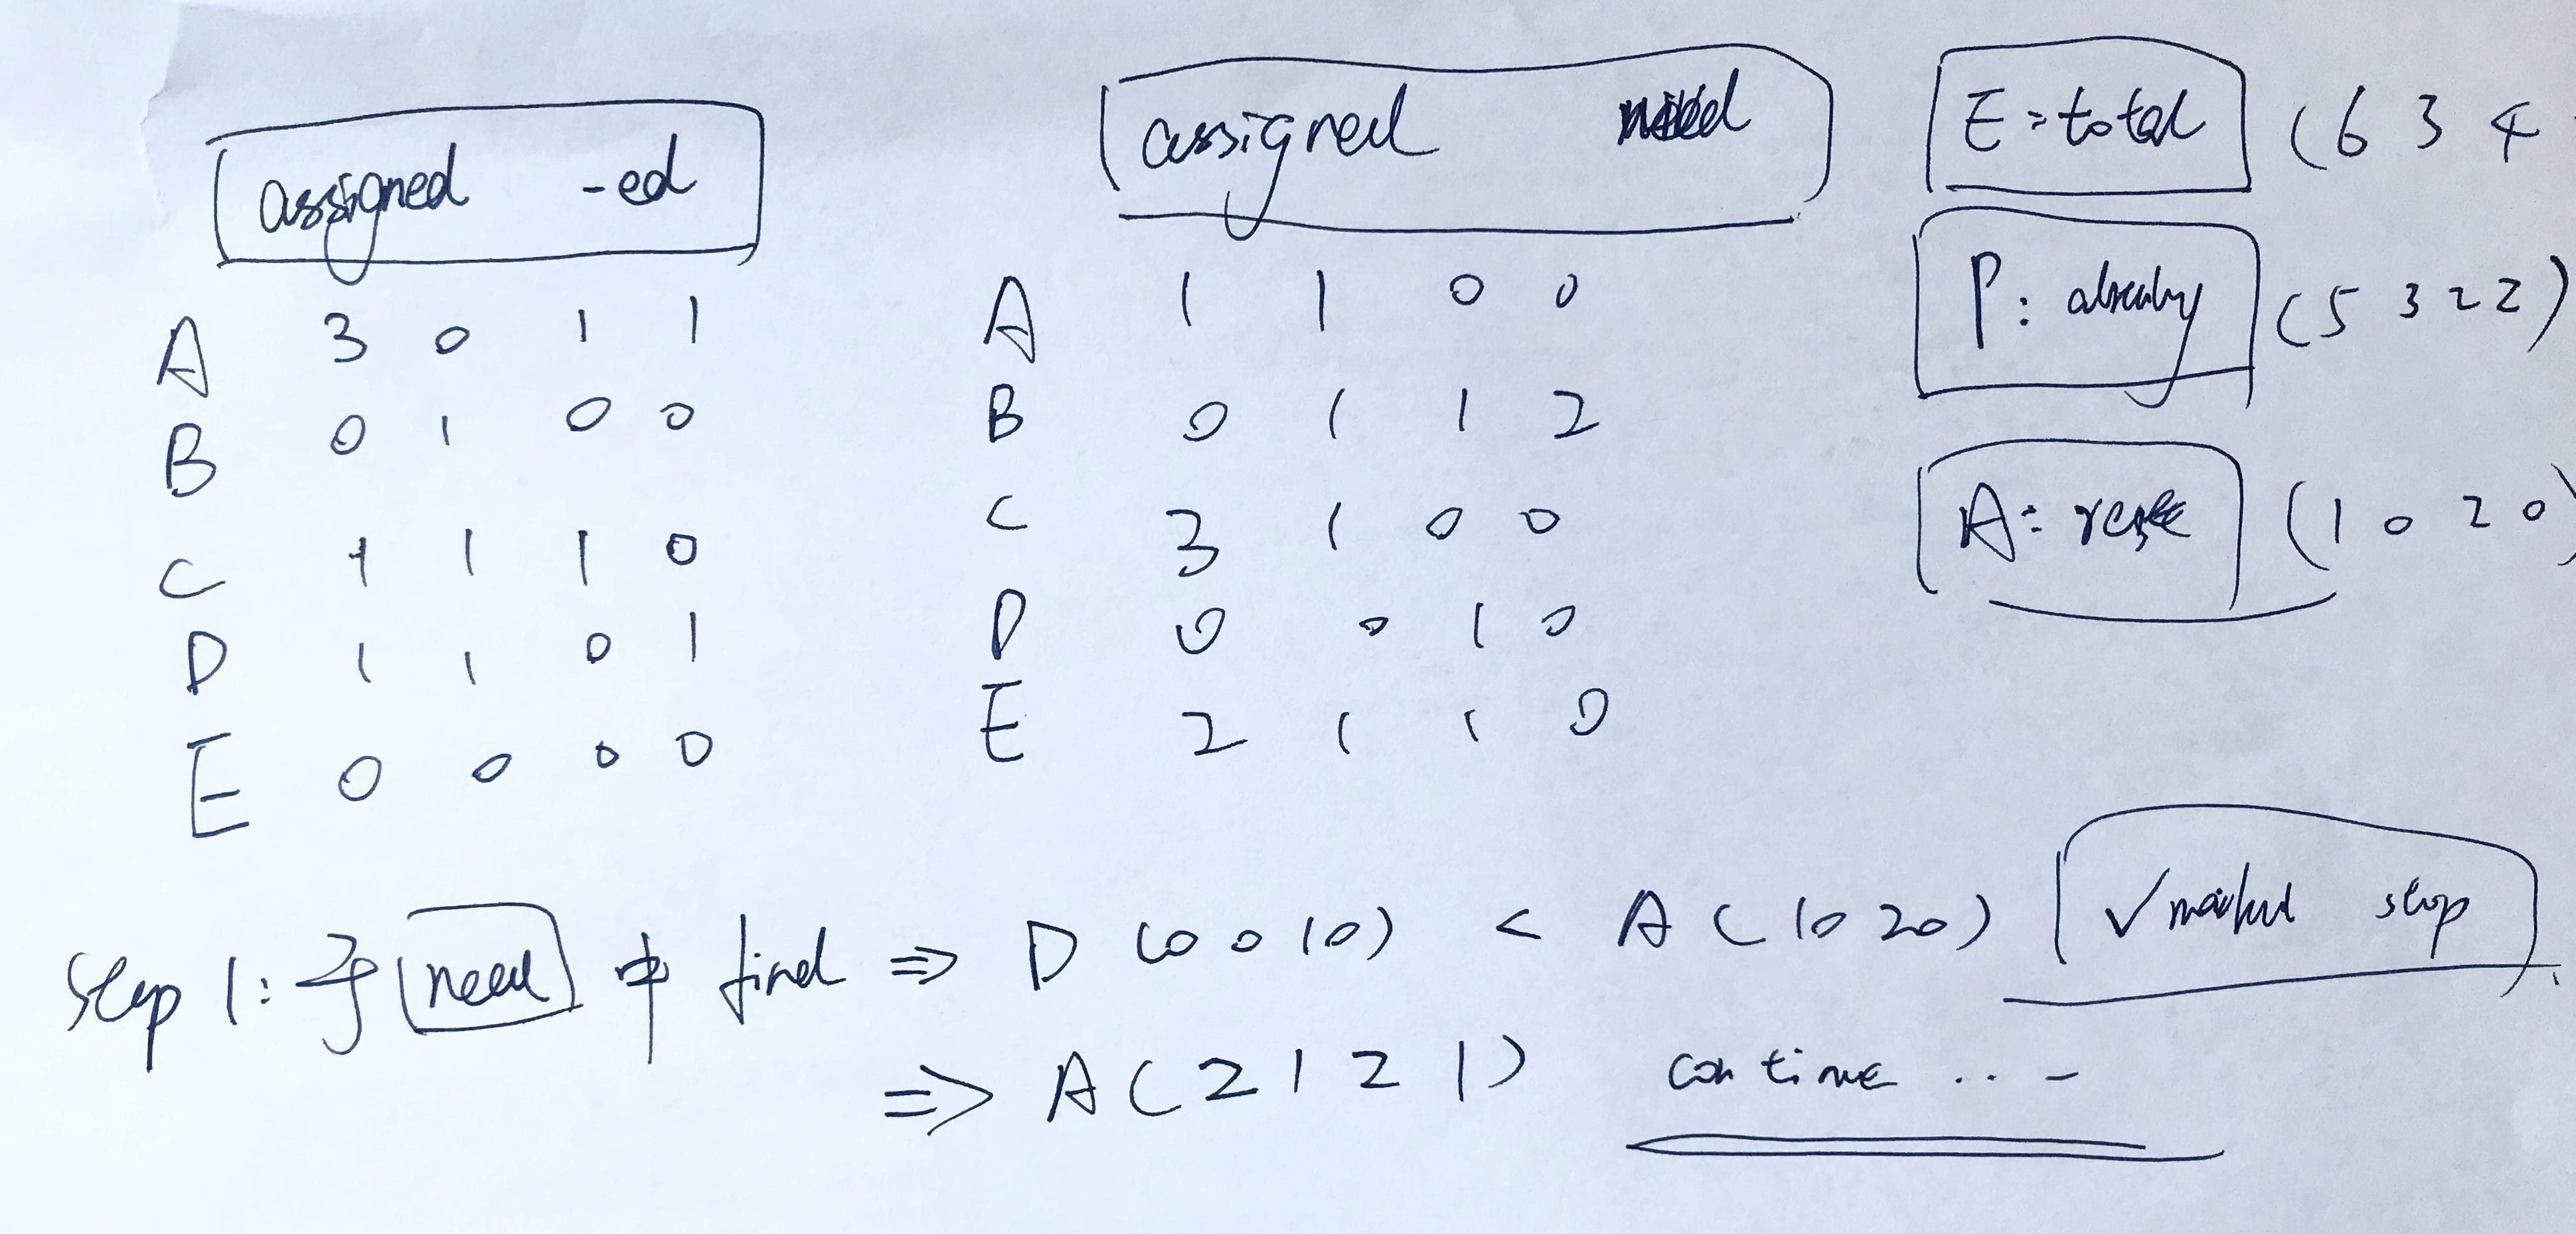 assigned -ed
A 3 0 1 1
B 0 1 0 0
C 1 1 1 0
D 1 1 0 1
E 0 0 0 0
assigned need
A 1 1 0 0
B 0 1 1 2
C 3 1 0 0
D 0 0 1 0
E 2 1 1 0
E = total (6 3 4
P: already (5 3 2 2)
A: (1 0 2 0)
Step 1: 于 need 中 find ⇒ D (0 0 1 0) < A (1 0 2 0) ✓ stop
⇒ A (2 1 2 1) continue ...